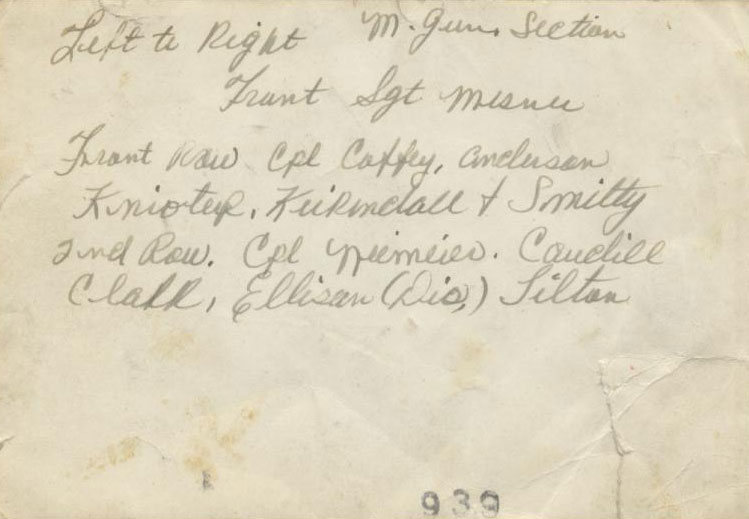 Left to Right M. Gun. Section
Front Sgt Mesner
Front Row Cpl Coffey, Anderson
Kuirndall & Smitty
2nd Row. Cpl Niemeier. Caudill
Clark, Ellison (Dis.) Tilton
939